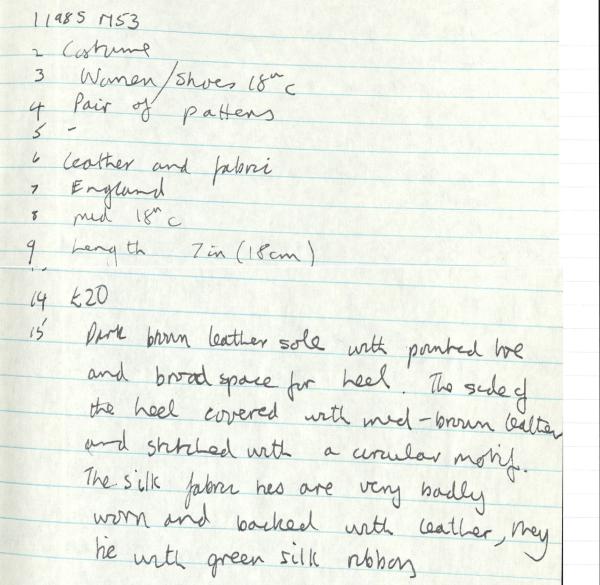 1 1985 M53
2 Costume
3 Women/Shoes 18th c
4 Pair of pattens
5 -
6 leather and fabric
7 England
8 mid 18th c
9 Length 7in (18cm)
14 £20
15 Dark brown leather sole with pointed toe
and broad space for heel. The side of
the heel covered with mid-brown leather
and stitched with a circular motif.
The silk fabric ties are very badly
worn and backed with leather, they
tie with green silk ribbons